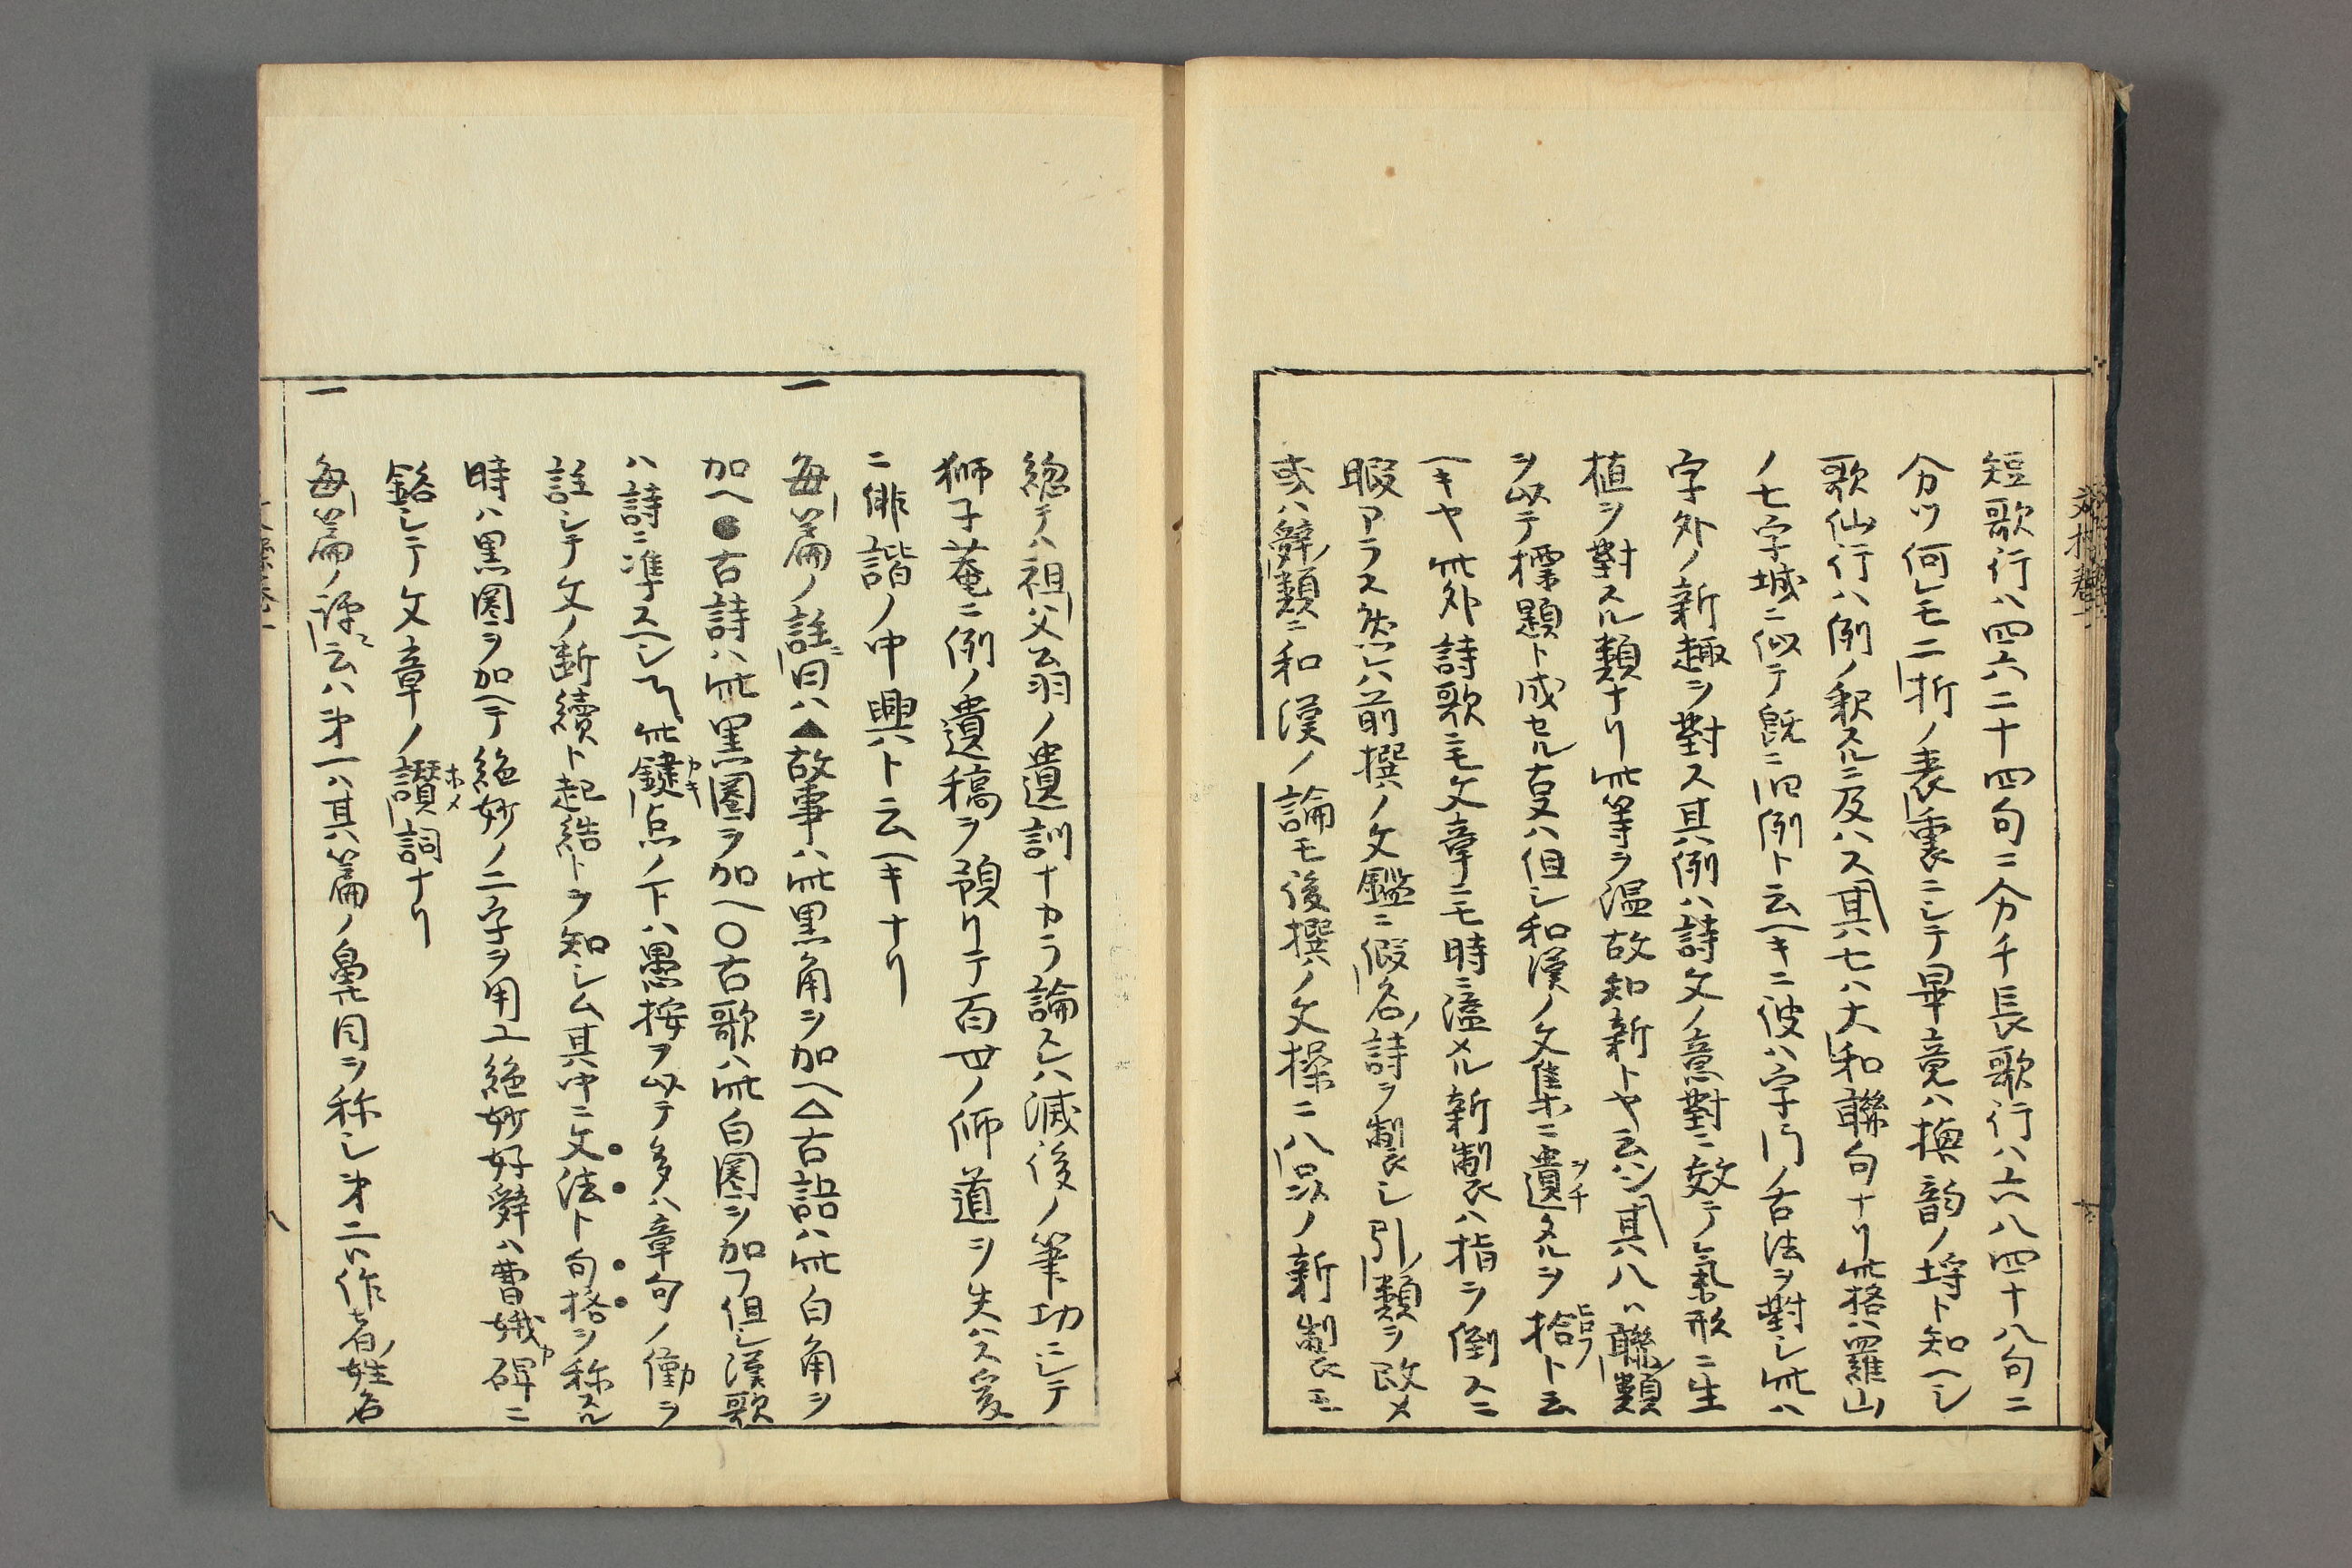 短歌行ハ四六二十四句ニ分チ長歌行ハ六八四十八句ニ
分ツ何レモ二折ノ表裏ニシテ畢竟ハ換韵ノ埒ト知ヘシ
歌仙行ハ例ノ釈スルニ及ハス其七ハ大和聯句ナリ此格ハ羅山
ノ七字城ニ似テ既ニ旧例ト云ヘキニ彼ハ字門ノ古法ヲ對シ此ハ
字外ノ新趣ヲ對ス其例ハ詩文ノ意對ニ效テ氣形ニ生
植ヲ對スル類ナリ此等ヲ温故知新トヤ云ハン其八ハ聯類
ヲ以テ標題ト成セル古叓ハ但シ和漢ノ文集ニ遺タルヲ拾ト云
ヘキヤ此外詩歌ニモ文章ニモ時ニ溢メル新製ハ指ヲ倒スニ
暇アラス然レハ前撰ノ文鑑ニ假名詩ヲ製シ引類ヲ改メ
或ハ辞類ニ和漢ノ論モ後撰ノ文操ニハノ新製モ
総テハ祖父翁ノ遺訓ナカラ論スレハ滅後ノ筆功ニシテ
獅子菴ニ例ノ遺稿ヲ預リテ百世ノ師道ヲ失ハス爰
ニ俳諧ノ中興ハト云ヘキナリ
一 毎篇ノ註ニ曰ハ▲故事ハ此黒角ヲ加ヘ△古語ハ此白角ヲ
加ヘ●古詩ハ此黒圏ヲ加ヘ○古歌ハ此白圏ヲ加フ但シ漢歌
ハ詩ニ準スヘシ此鍵点ノ下ハ愚按ヲ以テ多ハ章句ノ働ヲ
註シテ文ノ断續ト起結トヲ知シム其中ニ文法ト句格ヲ称スル
時ハ黒圏ヲ加ヘテ絶妙ノ二字ヲ用ユ絶妙好辞ハ曹娥碑ニ
銘シテ文章ノ讃詞ナリ
一 毎篇ノ譯ニ云ハ第一ハ其篇ノ鼻目ヲ称シ第二ハ作者ノ姓名